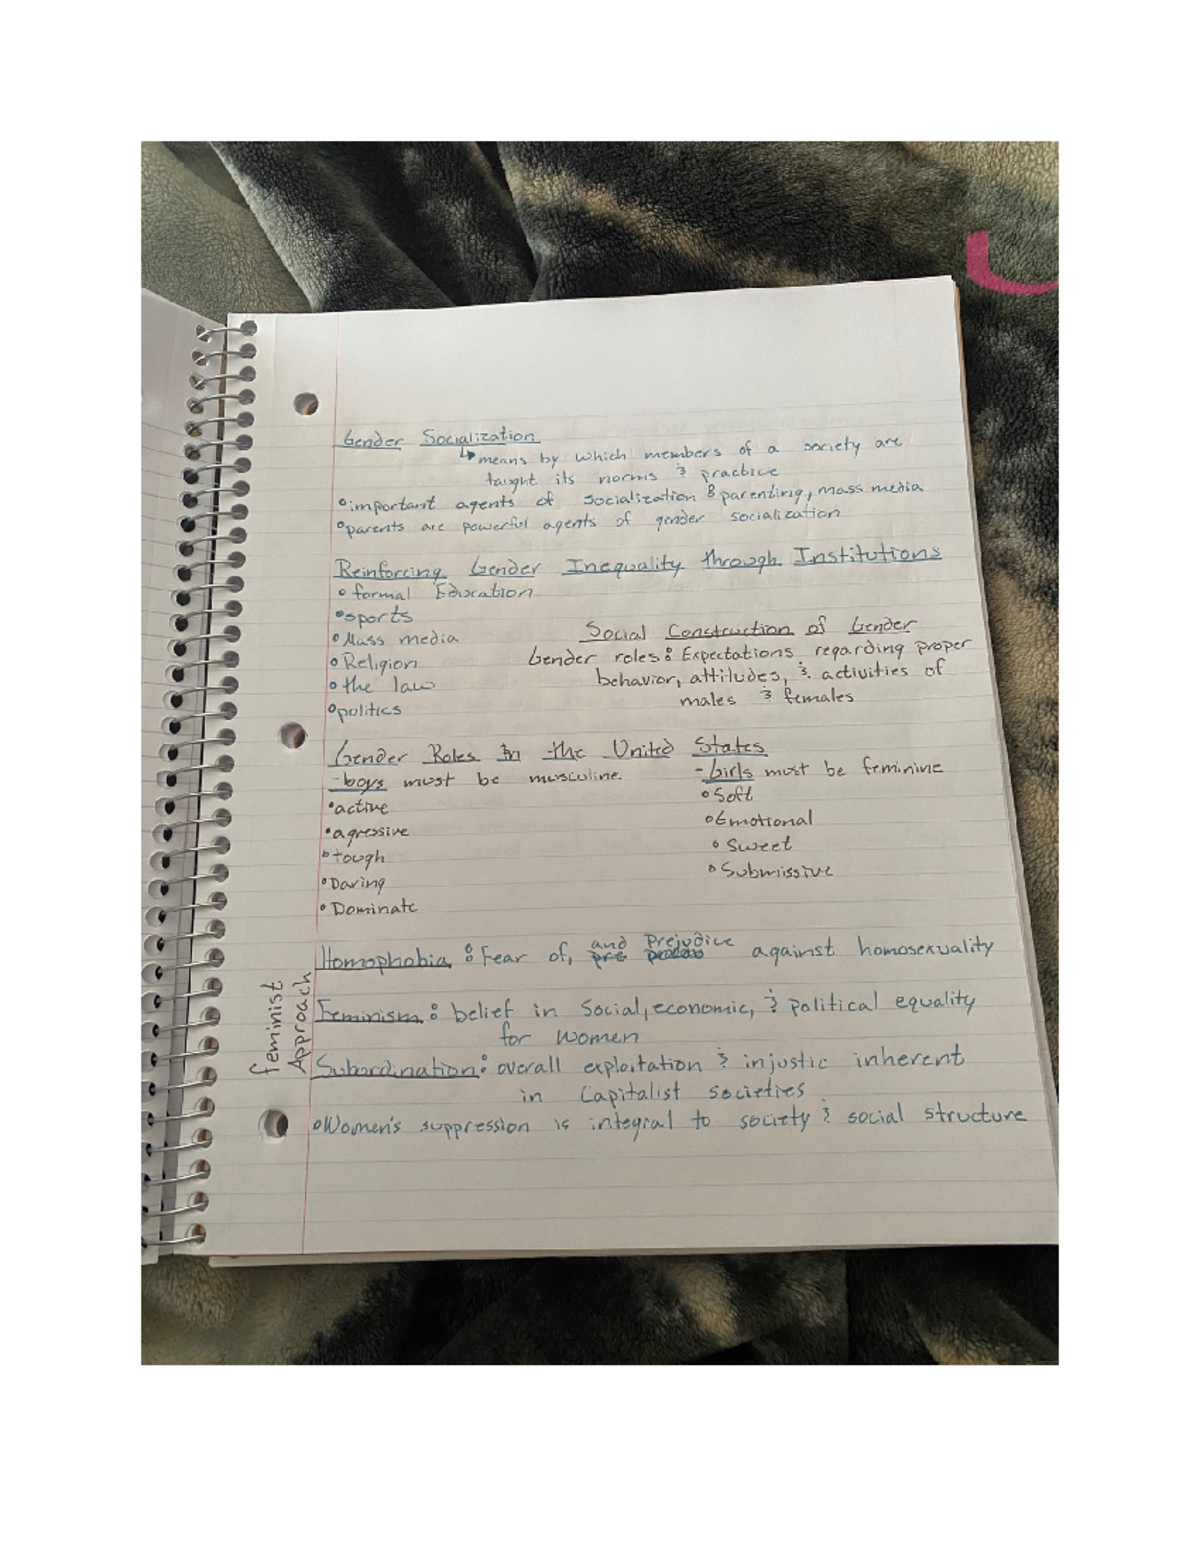 Gender Socialization
↳ means by which members of a society are
taught its norms & practice
• important agents of socialization : parenting, mass media
• parents are powerful agents of gender socialization
Reinforcing Gender Inequality through Institutions
• formal Education
• sports
• Mass media
• Religion
• the law
• politics
Social Construction of Gender
Gender roles: Expectations regarding proper
behavior, attitudes, & activities of
males & females
Gender Roles In the United States
- boys must be masculine
• active
• agressive
• tough
• Daring
• Dominate
- Girls must be feminine
• Soft
• Emotional
• Sweet
• Submissive
Homophobia : Fear of, and Prejudice against homosexuality
Feminist
Approach
Feminism : belief in Social, economic, & political equality
for women
Subordination : overall exploitation & injustic inherent
in Capitalist societies
• Women's suppression is integral to society & social structure